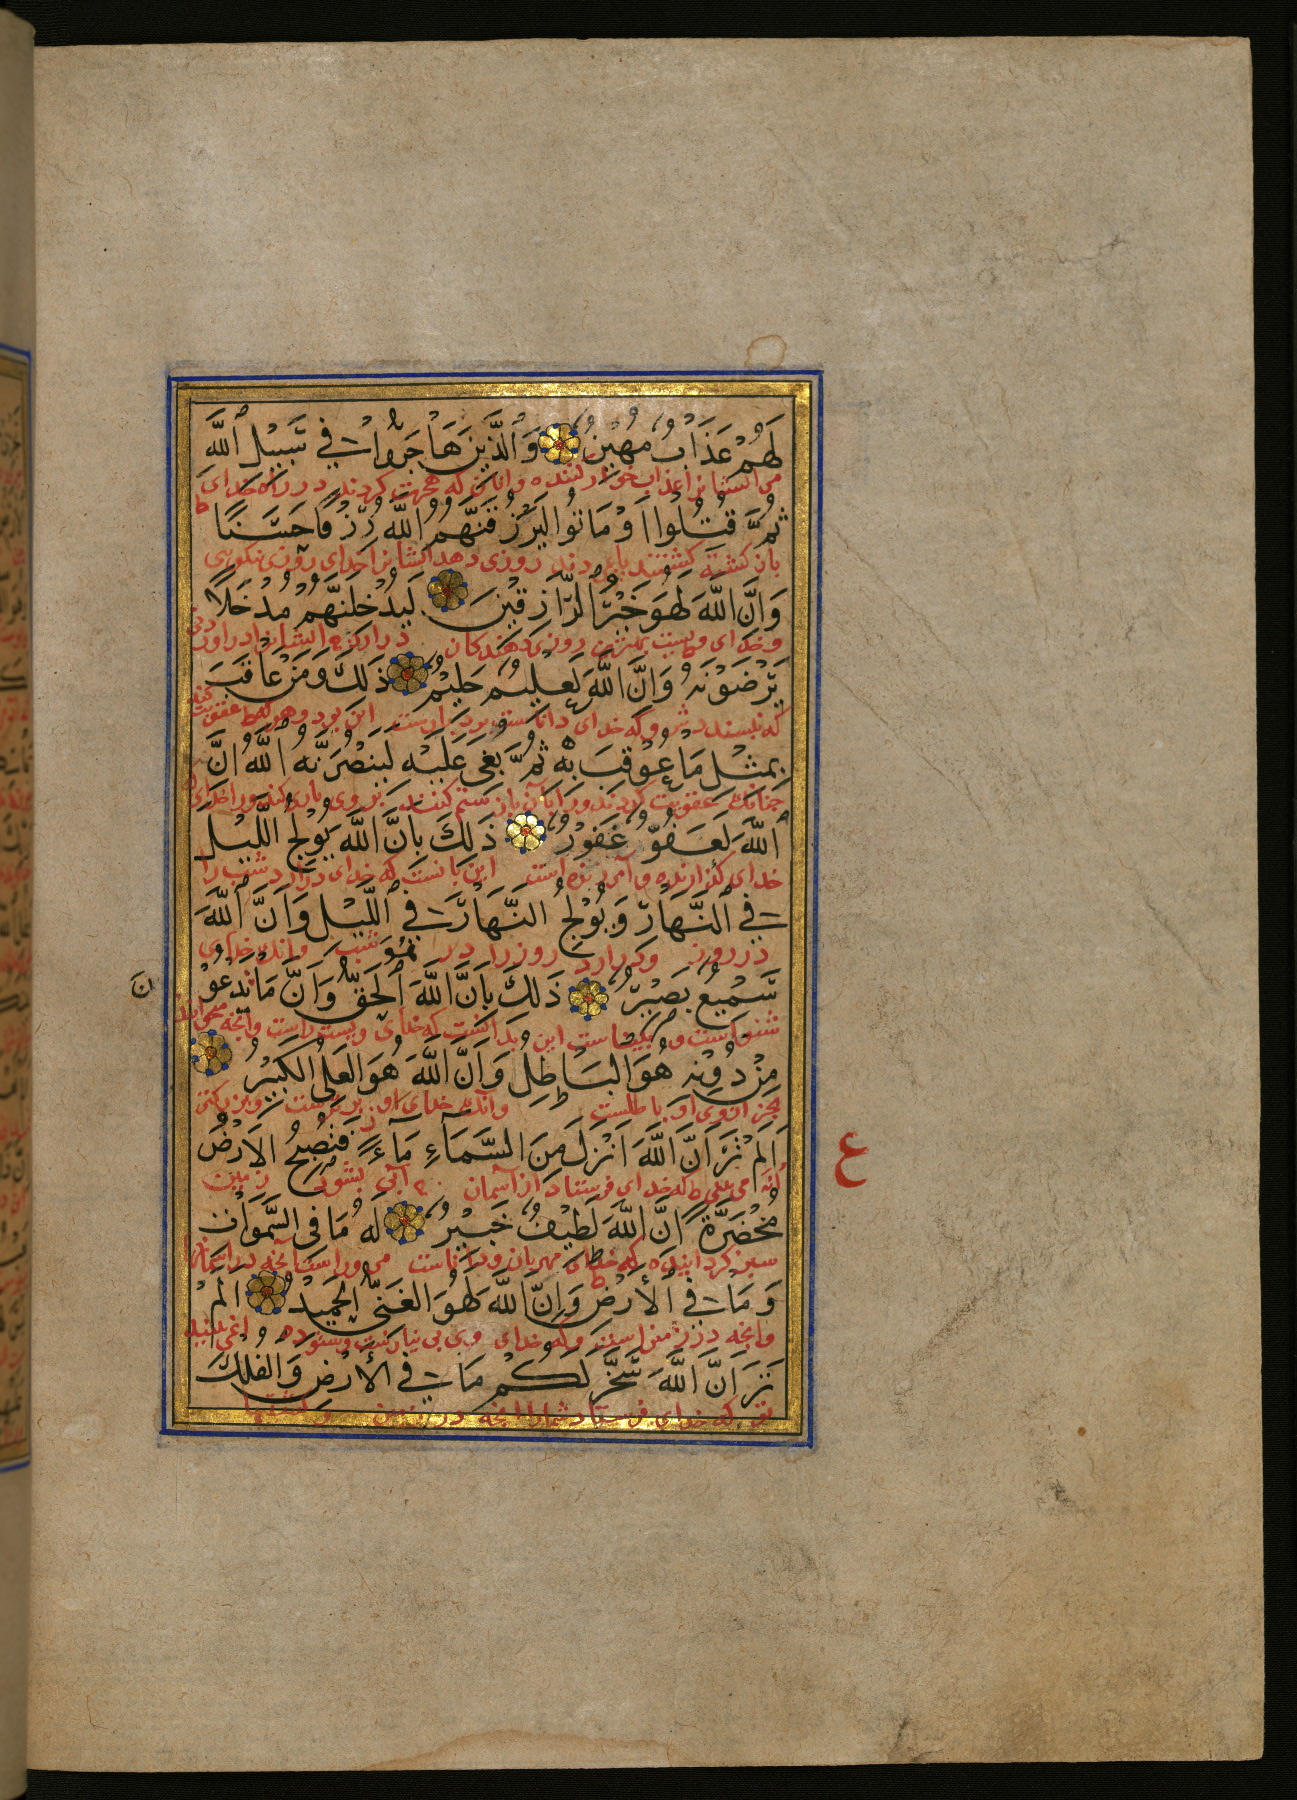 لَهُمْ عَذَابٌ مُهِينٌ وَالَّذِينَ هَاجَرُوا فِي سَبِيلِ اللَّهِ
ایشانرا عذاب خوار کننده و آنان که هجرت کردند در راه خدای
ثُمَّ قُتِلُوا أَوْ مَاتُوا لَيَرْزُقَنَّهُمُ اللَّهُ رِزْقًا حَسَنًا
باز کشته کشتند یا بمردند روزی دهد ایشانرا خدای روزی نیکویی
وَإِنَّ اللَّهَ لَهُوَ خَيْرُ الرَّازِقِينَ لَيُدْخِلَنَّهُمْ مُدْخَلًا
و خدای ویست بهترین روزی دهندکان در ارد ایشانرا در اوردنی
يَرْضَوْنَهُ وَإِنَّ اللَّهَ لَعَلِيمٌ حَلِيمٌ ذَلِكَ وَمَنْ عَاقَبَ
که بپسندندش و که خدای داناست بردبارست این بود و هر که عقوبت کند
بِمِثْلِ مَا عُوقِبَ بِهِ ثُمَّ بُغِيَ عَلَيْهِ لَيَنْصُرَنَّهُ اللَّهُ إِنَّ
چنانک عقوبت کردند ورا بآن باز ستم کنند بر وی یاری کند ورا خدای
اللَّهَ لَعَفُوٌّ غَفُورٌ ذَلِكَ بِأَنَّ اللَّهَ يُولِجُ اللَّيْلَ
خدای کذارنده و آمرزنده است این بانست که خدای درارد شب را
فِي النَّهَارِ وَيُولِجُ النَّهَارَ فِي اللَّيْلِ وَأَنَّ اللَّهَ
در روز و درارد روز را در شب و انک خدای
سَمِيعٌ بَصِيرٌ ذَلِكَ بِأَنَّ اللَّهَ هُوَ الْحَقُّ وَأَنَّ مَا يَدْعُونَ
شنواست و بیناست این بدانست که خدای ویست راست و آنچه میخوانند
مِنْ دُونِهِ هُوَ الْبَاطِلُ وَأَنَّ اللَّهَ هُوَ الْعَلِيُّ الْكَبِيرُ
بجز از وی او باطلست و آنک خدای او برترست و بزرکتر
أَلَمْ تَرَ أَنَّ اللَّهَ أَنْزَلَ مِنَ السَّمَاءِ مَاءً فَتُصْبِحُ الْأَرْضُ
ع
که خدای فرستاد از آسمان آبی بشود زمین
مُخْضَرَّةً إِنَّ اللَّهَ لَطِيفٌ خَبِيرٌ لَهُ مَا فِي السَّمَوَاتِ
سبز کردانیده که خدای مهربان و داناست مر وراست آنچه در اسمانها
وَمَا فِي الْأَرْضِ وَإِنَّ اللَّهَ لَهُوَ الْغَنِيُّ الْحَمِيدُ أَلَمْ
وانچه در زمین است و که خدای وی بی نیازست و ستوده
تَرَ أَنَّ اللَّهَ سَخَّرَ لَكُمْ مَا فِي الْأَرْضِ وَالْفُلْكَ
که خدای شمارا انچه در زمین و کشتیها